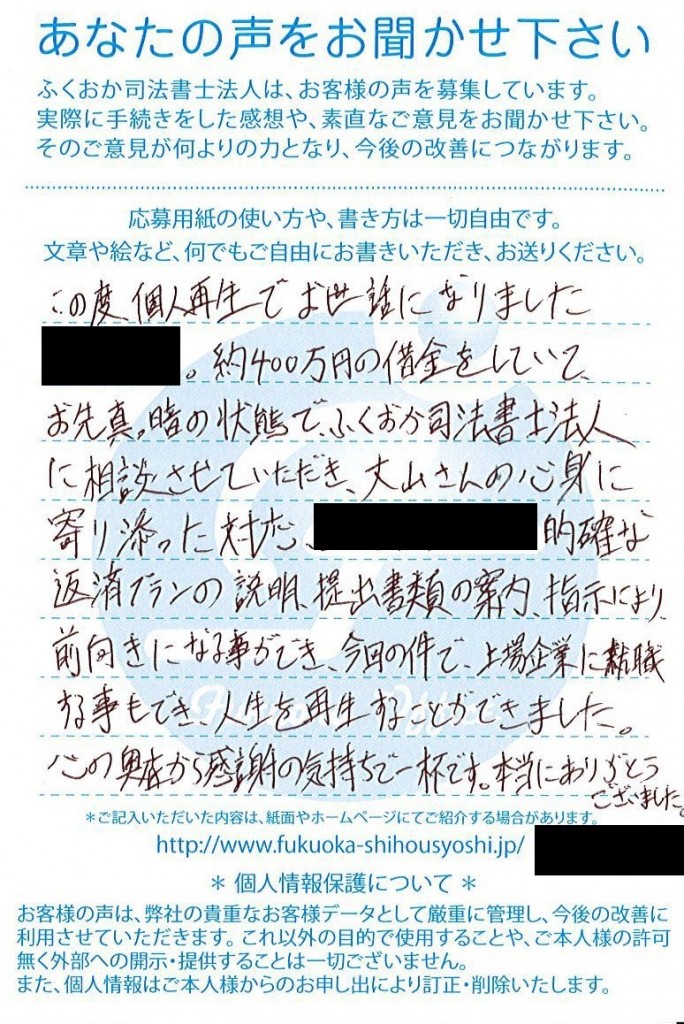 あなたの声をお聞かせ下さい
ふくおか司法書士法人は、お客様の声を募集しています。
実際に手続きをした感想や、素直なご意見をお聞かせ下さい。
そのご意見が何よりの力となり、今後の改善につながります。
応募用紙の使い方や、書き方は一切自由です。
文章や絵など、何でもご自由にお書きいただき、お送りください。
この度、個人再生でお世話になりました
。約400万円の借金をしていて、
お先真っ暗の状態で、ふくおか司法書士法人
に相談させていただき、丈山さんの心身に
寄り添った対応、的確な
返済プランの説明、提出書類の案内、指示により、
前向きになる事ができ、今回の件で、上場企業に就職
する事もでき、人生を再生することができました。
心の奥底から感謝の気持ちで一杯です。本当にありがとう
ございました。
＊ご記入いただいた内容は、紙面やホームページにてご紹介する場合があります。
http://www.fukuoka-shihousyoshi.jp/
＊ 個人情報保護について ＊
お客様の声は、弊社の貴重なお客様データとして厳重に管理し、今後の改善に
利用させていただきます。これ以外の目的で使用することや、ご本人様の許可
無く外部への開示・提供することは一切ございません。
また、個人情報はご本人様からのお申し出により訂正・削除いたします。